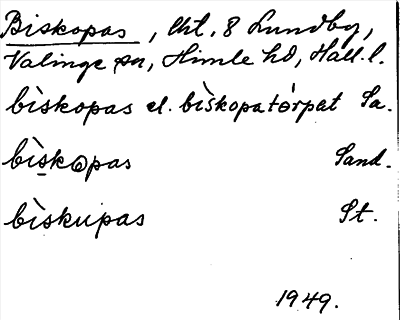 Biskopas, lht. 8 Lundby,
Valinge sn, Himle hd, Hall. l.
bìskopas el. bìskopatǿrpat Sa.
bìskopas Sand.
bìskupas St.
1949.